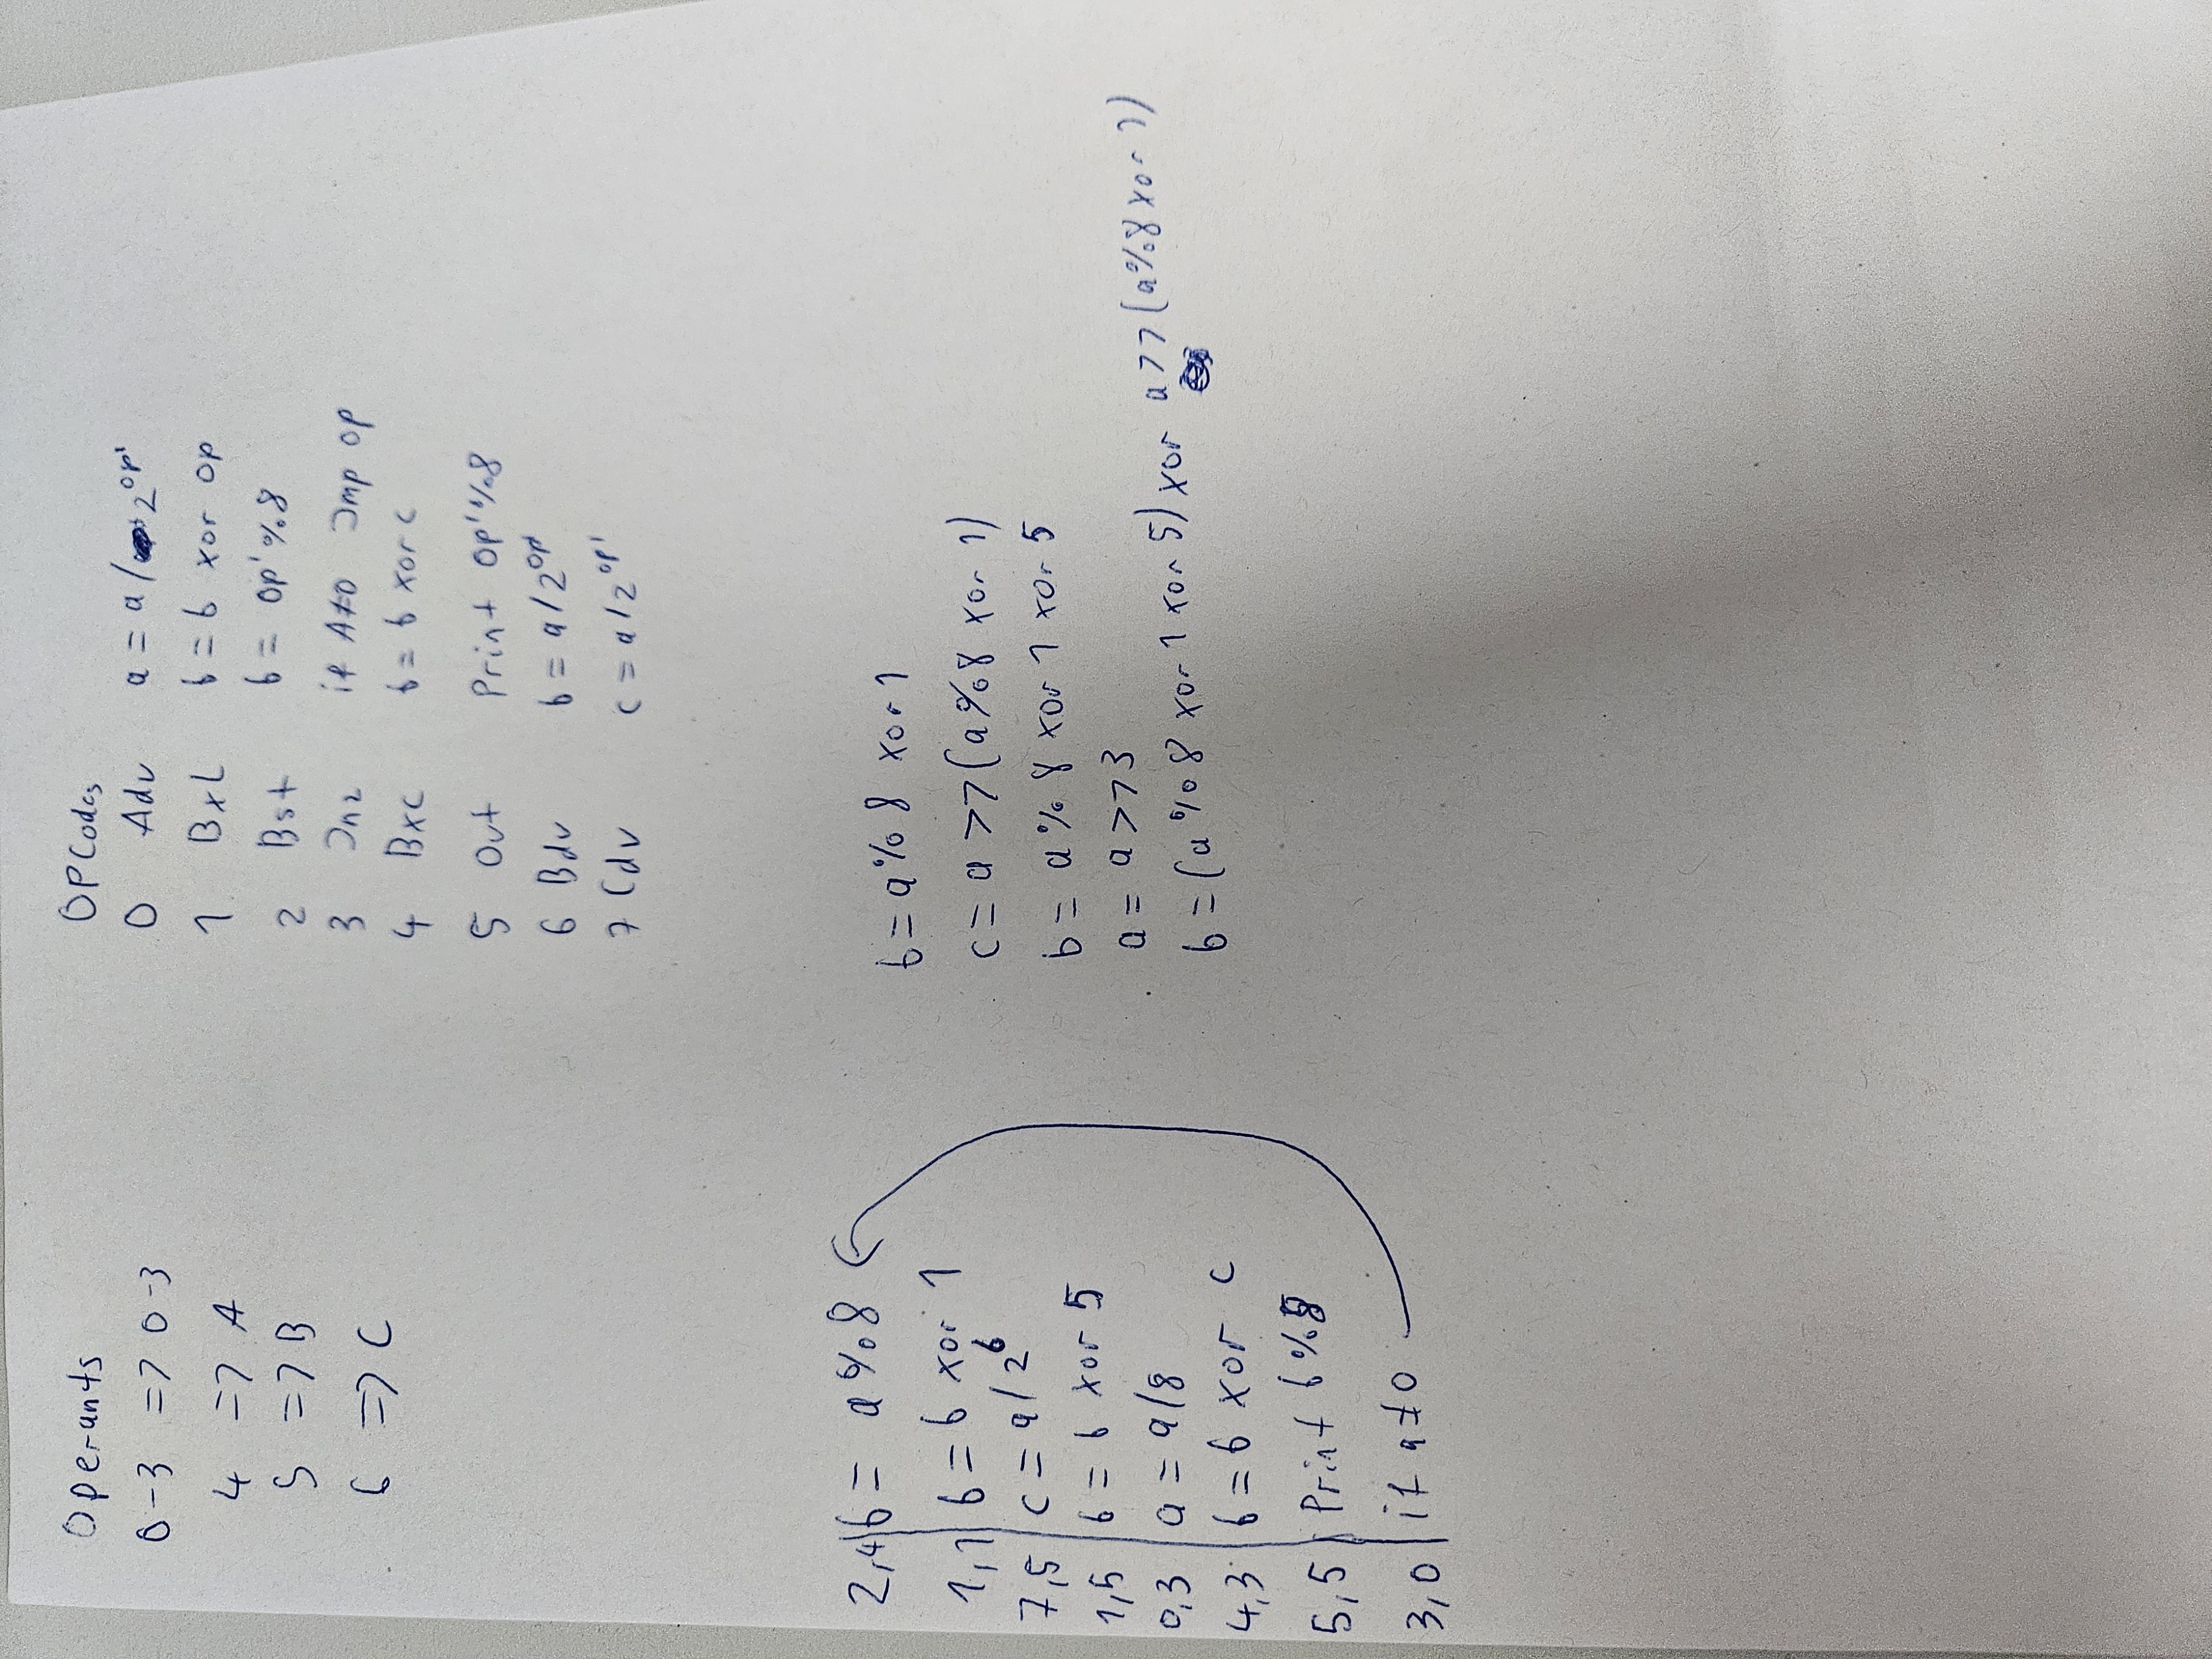 Operants
0-3 => 0-3
4 => A
5 => B
6 => C
OPCodes
0 Adv a = a / 2^op'
1 BxL b = b xor op
2 Bst b = op' % 8
3 Jnz if A≠0 Jmp op
4 Bxc b = b xor c
5 Out Print op' % 8
6 Bdv b = a / 2^op'
7 Cdv c = a / 2^op'
2,4 | b = a % 8
1,1 | b = b xor 1
7,5 | c = a / 2^b
1,5 | b = b xor 5
0,3 | a = a/8
4,3 | b = b xor c
5,5 | Print b % 8
3,0 | if a≠0
b = a % 8 xor 1
c = a >> (a % 8 xor 1)
b = a % 8 xor 1 xor 5
a = a >> 3
b = (a % 8 xor 1 xor 5) xor a >> (a % 8 xor 1)